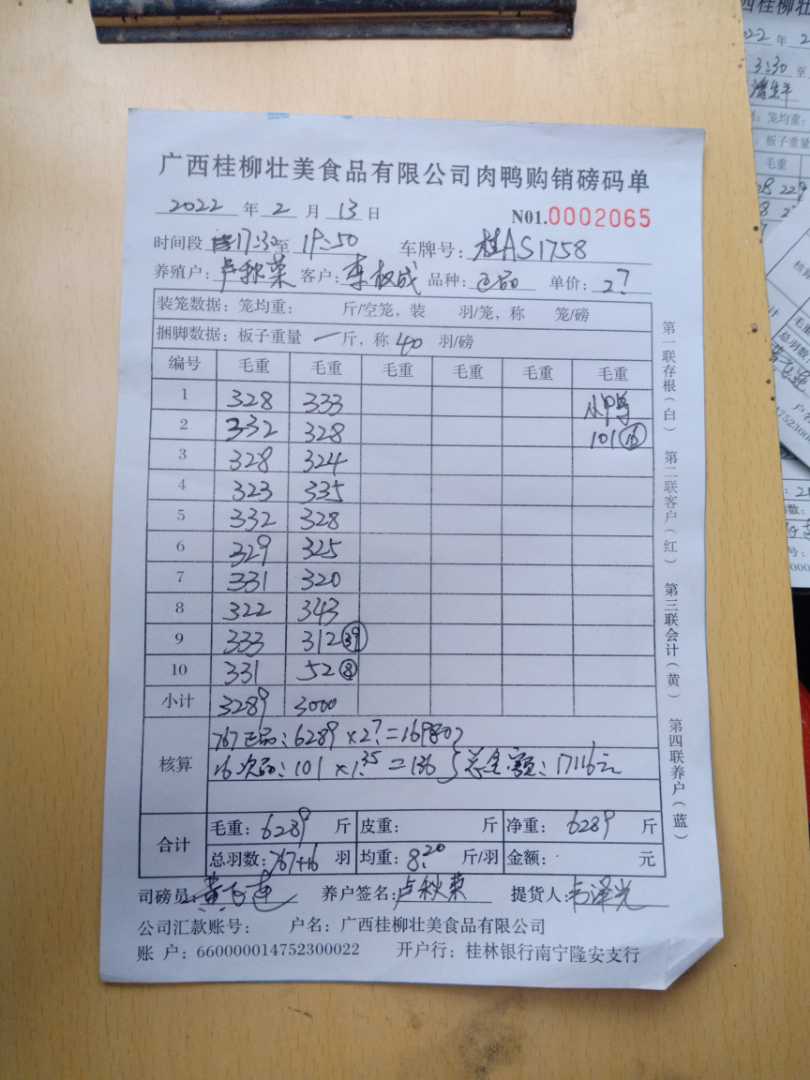 广西桂柳壮美食品有限公司肉鸭购销磅码单
2022 年 2 月 13 日 N01.0002065
时间段 17:30 至 19:50 车牌号: 桂AS1758
养殖户: 卢秋荣 客户: 李权成 品种: 正品 单价: 2.7
装笼数据: 笼均重: 斤/空笼, 装 羽/笼, 称 笼/磅
捆脚数据: 板子重量 一 斤, 称 40 羽/磅
编号 毛重 毛重 毛重 毛重 毛重 毛重
1 328 333 小鸭
2 332 328 101 16
3 328 324
4 323 335
5 332 328
6 329 325
7 331 320
8 322 343
9 333 312 39
10 331 52 8
小计 3289 3000
核算
767正品: 6289×2.7=16980
16次品: 101×1.35=136 总金额: 17116元
合计
毛重: 6289 斤 皮重: 斤 净重: 6289 斤
总羽数: 767+16 羽 均重: 8.20 斤/羽 金额: 元
司磅员: 养户签名: 卢秋荣 提货人: 韦泽光
公司汇款账号: 户名: 广西桂柳壮美食品有限公司
账 户: 660000014752300022 开户行: 桂林银行南宁隆安支行
第一联存根(白) 第二联客户(红) 第三联会计(黄) 第四联养户(蓝)
3:30 至
笼均重:
板子重量
毛重